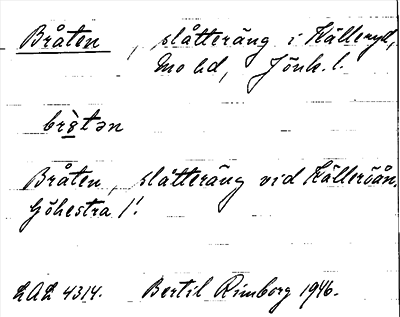 Bråten, slåtteräng i Källeryd,
Mo hd, Jönk. l.
brå̀tən
Bråten, slåtteräng vid Källerödån.
Göhestra 1/1.
LAL 4314. Bertil Rimborg 1946.